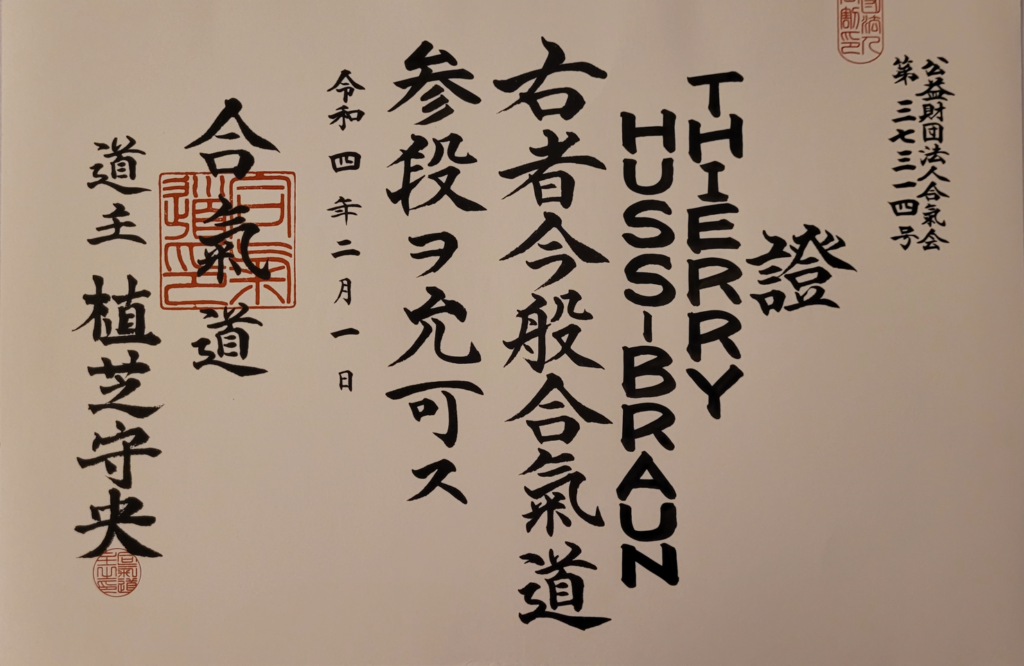 公益財団法人合氣会
第三七三一四号
證
THIERRY
HUSS-BRAUN
右者今般合氣道
参段ヲ允可ス
令和四年二月一日
合氣道
道主 植芝守央